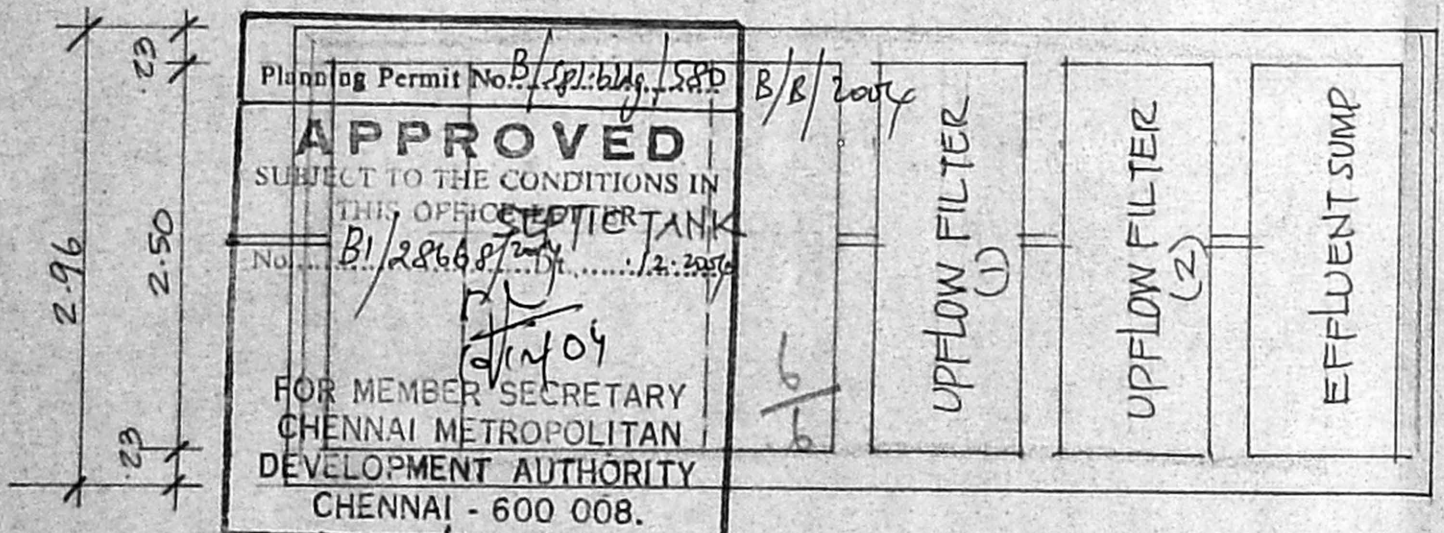 .23
2.50
2.96
.23
Planning Permit No. B/Spl.bldg./580 B/B/2004
APPROVED
SUBJECT TO THE CONDITIONS IN
THIS OFFICE LETTER
SEPTIC TANK
No. B1/28668/2004 Dt. .12.2004
FOR MEMBER SECRETARY
CHENNAI METROPOLITAN
DEVELOPMENT AUTHORITY
CHENNAI - 600 008.
UPFLOW FILTER
(1)
UPFLOW FILTER
(2)
EFFLUENT SUMP